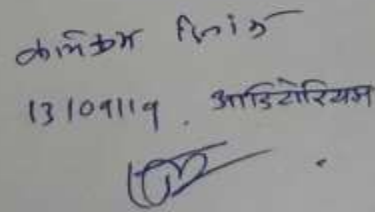 कार्यक्रम दिनांक
13/09/19. आडिटोरियम